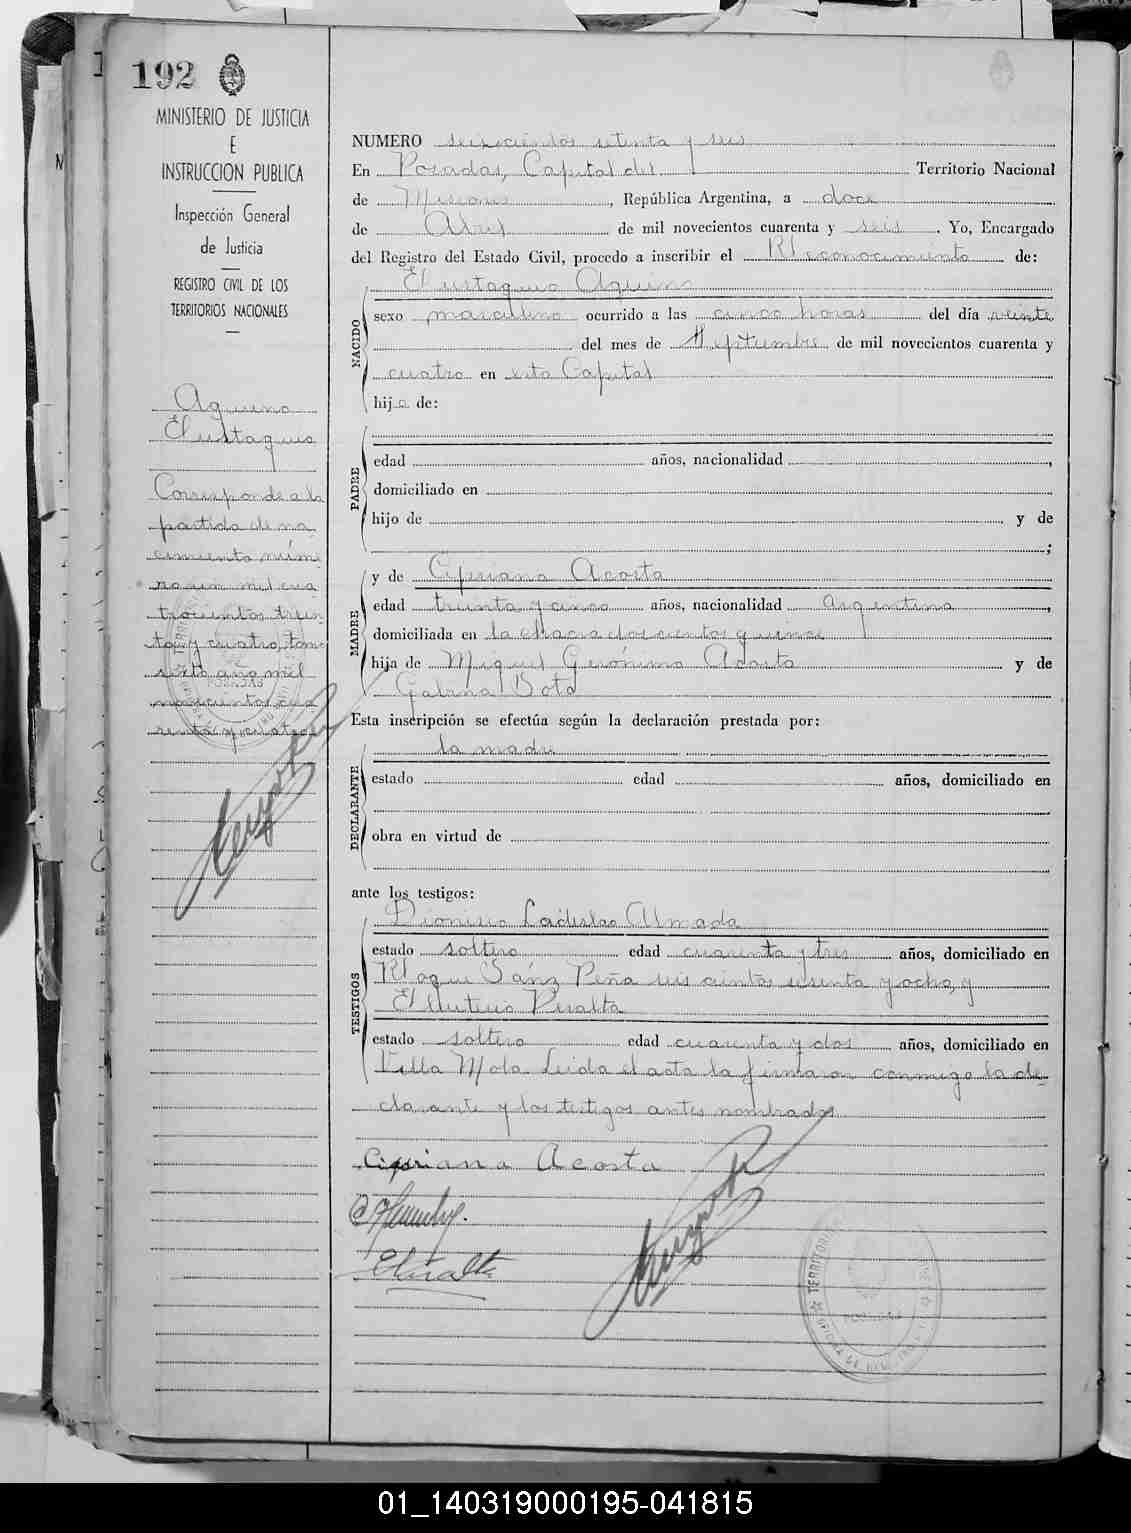 192
MINISTERIO DE JUSTICIA
E
INSTRUCCION PUBLICA
Inspección General
de Justicia
REGISTRO CIVIL DE LOS
TERRITORIOS NACIONALES
Aquino
Eustaquio
Corresponde a la
partida de na
cimiento núm
ro un mil cua
trocientos trein
ta y cuatro, tomo
sexto año mil
novecientos cua
renta y cuatro
NUMERO seiscientos setenta y seis
En Posadas, Capital del Territorio Nacional
de Misiones, República Argentina, a doce
de Abril de mil novecientos cuarenta y seis. Yo, Encargado
del Registro del Estado Civil, procedo a inscribir el Reconocimiento de:
NACIDO
Eustaquio Aquino
sexo masculino ocurrido a las cinco horas del día veinte
del mes de Septiembre de mil novecientos cuarenta y
cuatro en esta Capital
hijo de:
PADRE
edad años, nacionalidad ,
domiciliado en
hijo de y de
;
MADRE
y de Cipriana Acosta
edad treinta y cinco años, nacionalidad Argentina,
domiciliada en la chacra doscientos quince
hija de Miguel Gerónimo Acosta y de
Gabina Soto
Esta inscripción se efectúa según la declaración prestada por:
DECLARANTE
la madre
estado edad años, domiciliado en
obra en virtud de
ante los testigos:
TESTIGOS
Dionisio Ladislao Almada
estado soltero edad cuarenta y tres años, domiciliado en
Roque Sánz Peña seis cientos sesenta y ocho, y
Eleuterio Peralta
estado soltero edad cuarenta y dos años, domiciliado en
Villa Mola. Leida el acta la firmaron conmigo la de-
clarante y los testigos antes nombrados.
Cipriana Acosta
EPeralta
POSADAS
01_140319000195-041815